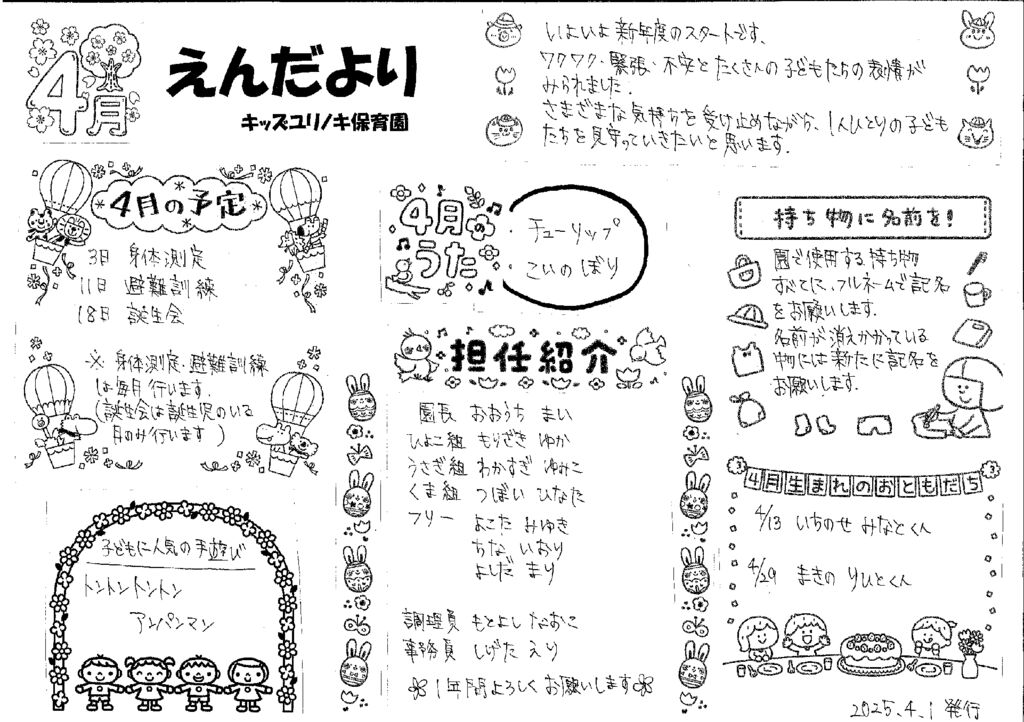 4月
えんだより
キッズユリノキ保育園
いよいよ新年度のスタートです。
ワクワク・緊張・不安とたくさんの子どもたちの表情が
みられました。
さまざまな気持ちを受け止めながら、1人ひとりの子ども
たちを見守っていきたいと思います。
4月の予定
3日 身体測定
11日 避難訓練
18日 誕生会
※身体測定・避難訓練
は毎月行います。
(誕生会は誕生児のいる
月のみ行います)
子どもに人気の手遊び
トントントントン
アンパンマン
4月の
うた
・チューリップ
・こいのぼり
担任紹介
園長 おおうち まい
ひよこ組 もりざき ゆか
うさぎ組 わかすぎ ゆみこ
くま組 つぼい ひなた
フリー よこた みゆき
ちな いおり
よしだ まり
調理員 もとよし たおこ
事務員 しげた えり
1年間よろしくお願いします
持ち物に名前を!
園で使用する持ち物
すべてに、フルネームで記名
をお願いします。
名前が消えかかっている
物には新たに記名を
お願いします。
4月生まれのおともだち
4/13 いちのせ みなとくん
4/29 まきの りひとくん
2025.4.1 発行